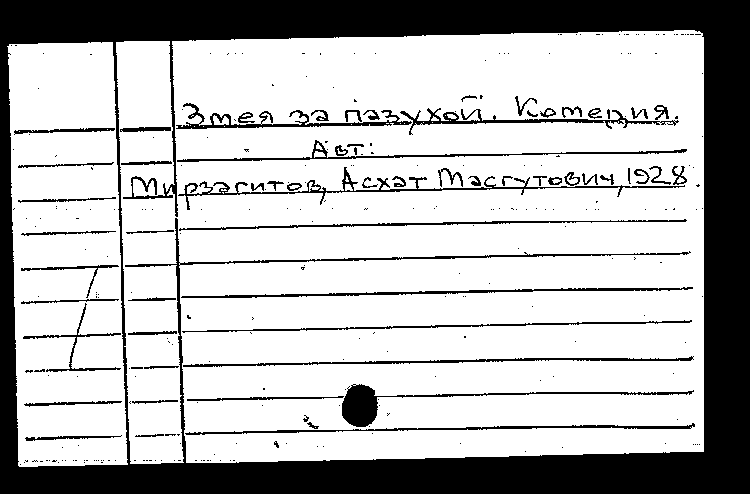 Змея за пазухой. Комедия.
Авт:
Мирзагитов, Асхат Масгутович, 1928